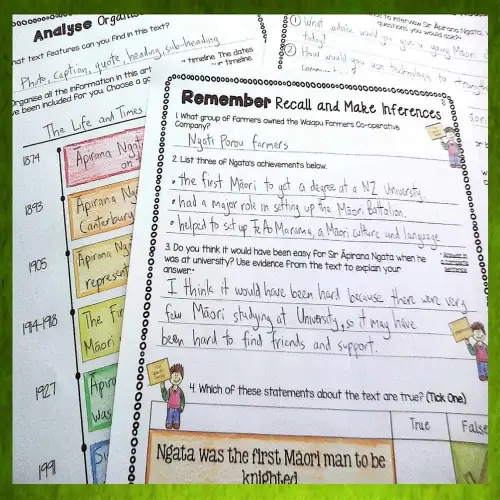 Analyse Organ
hat text features can you find in this text?
Photo, caption, quote, heading, sub-heading
Organise all the information in this art
timeline. The dates
ve been included for you. Choose a
timeline.
The Life and Times
1874
Apirana Nga
on
1893
Apirana Ng
Canterbury
1905
Apirana Nga
represent
1914-1918
The Fir
Māori
1927
Apira
was
1991
to interview Sir Apirana Ngata,
questions you would ask?
① What advice would you give a young Māori
today?
② How would you use technology to
Remember Recall and Make Inferences
1. What group of farmers owned the Waiapu Farmers Co-operative
Company?
Ngāti Porou farmers
2. List three of Ngata's achievements below.
• the first Māori to get a degree at a NZ University.
• had a major role in setting up the Māori Battalion.
• helped to set up Te Ao Marama, a Māori culture and language
3. Do you think it would have been easy for Sir Āpirana Ngata when he
was at university? Use evidence from the text to explain your
answer.
Answer in
a complete
sentence
I think it would have been hard because there were very
few Māori studying at University, so it may have
been hard to find friends and support.
4. Which of these statements about the text are true? (Tick One)
True
False
Ngata was the first Māori man to be
knighted